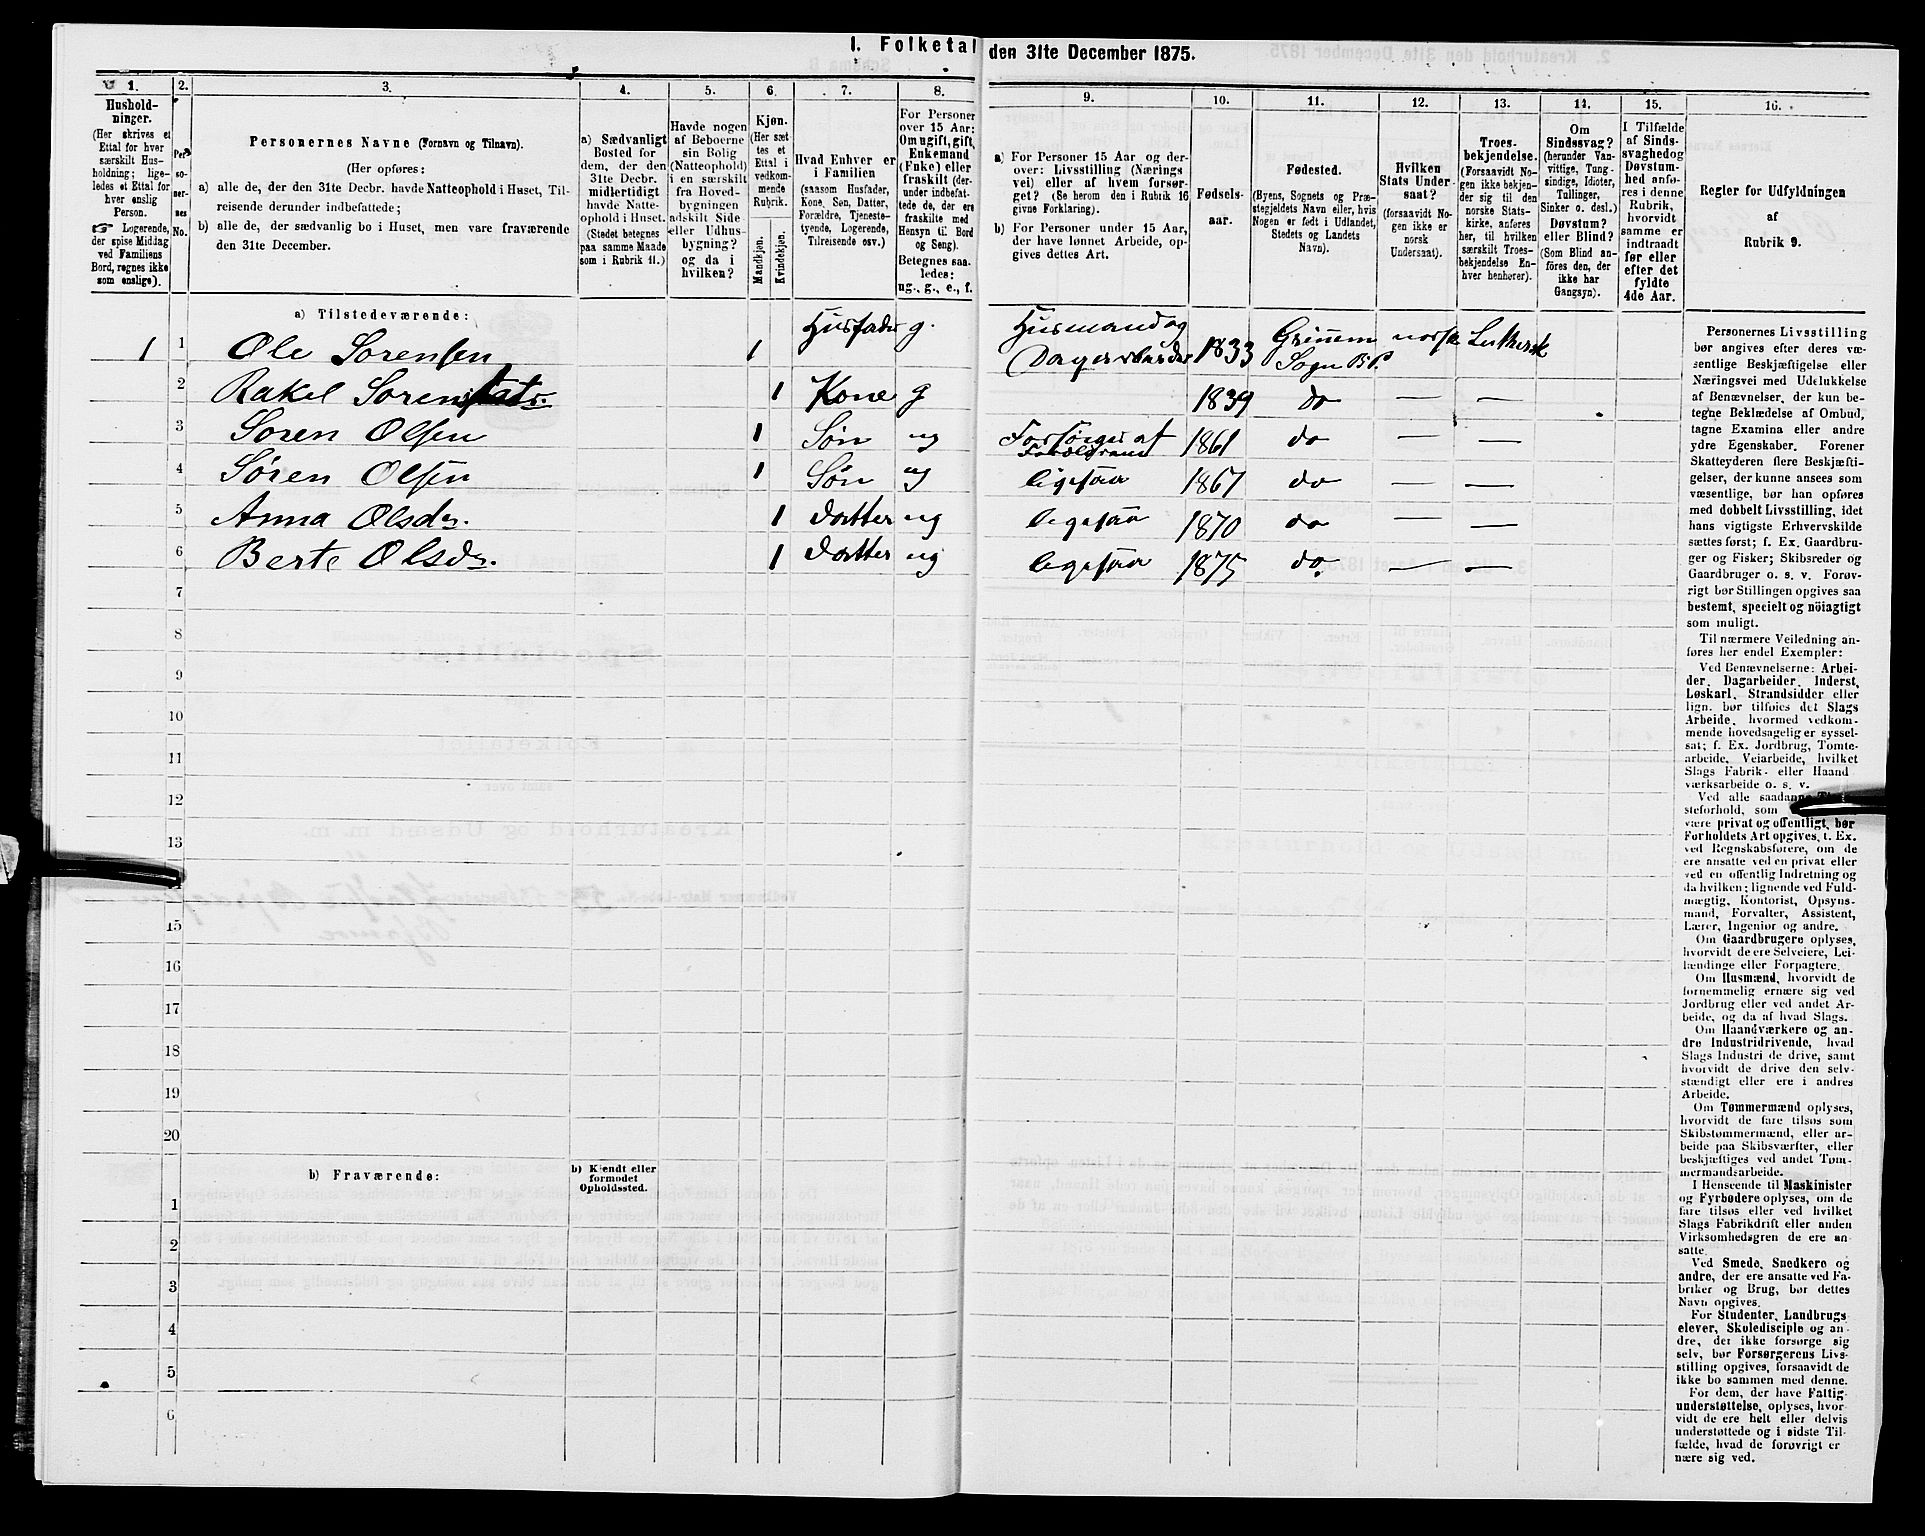 1. Folketal den 31te December 1875.
1. 2. 3. 4. 5. 6. 7. 8. 9. 10. 11. 12. 13. 14. 15. 16.
Hushold-
ninger.
(Her skrives et
Ettal for hver
særskilt Hus-
holdning; lige-
ledes et Ettal for
hver enslig
Person.
☞ Logerende,
der spise Middag
ved Familiens
Bord, regnes ikke
som enslige).
Per-
so-
ner-
nes
No.
Personernes Navne (Fornavn og Tilnavn).
(Her opføres:
a) alle de, der den 31te Decbr. havde Natteophold i Huset, Til-
reisende derunder indbefattede;
b) alle de, der sædvanlig bo i Huset, men vare fraværende
den 31te December.
a) Sædvanligt
Bosted for
dem, der den
31te Decbr.
midlertidigt
havde Natte-
ophold i Huset.
(Stedet betegnes
paa samme Maade
som i Rubrik 11.)
Havde nogen
af Beboerne
sin Bolig
(Natteophold)
i en særskilt
fra Hoved-
bygningen
adskilt Side-
eller Udhus-
bygning?
og da i
hvilken?
Kjøn.
(Her sæt-
tes et
Ettal i
vedkom-
mende
Rubrik.
Mandkjøn.
Kvindekjøn.
Hvad Enhver er
i Familien
(saasom Husfader,
Kone, Søn, Datter,
Forældre, Tjeneste-
tyende, Logerende,
Tilreisende osv.)
For Personer
over 15 Aar:
Om ugift, gift,
Enkemand
(Enke) eller
fraskilt (der-
under indbefat-
tede de, der ere
fraskilte med
Hensyn til Bord
og Seng).
Betegnes saa-
ledes:
ug., g., e., f.
a) For Personer 15 Aar og der-
over: Livsstilling (Nærings
vei) eller af hvem forsør-
get? (Se herom den i Rubrik 16
givne Forklaring).
b) For Personer under 15 Aar,
der have lønnet Arbeide, op-
gives dettes Art.
Fødsels-
aar.
Fødested.
(Byens, Sognets og Præ-
stegjeldets Navn eller, hvis
Nogen er født i Udlandet,
Stedets og Landets
Navn).
Hvilken
Stats Under-
saat?
(forsaavidt No-
gen ikke er
norsk
Undersaat).
Troes-
bekjendelse.
(Forsaavidt No-
gen ikke bekjen-
der sig til den
norske Stats-
kirke, anføres
her, til hvilken
særskilt Troes-
bekjendelse En-
hver henhører).
Om
Sindssvag?
(herunder Van-
vittige, Tung-
sindige, Idioter,
Tullinger,
Sinker o. desl.)
Døvstum?
eller Blind?
(Som Blind an-
føres den, der
ikke har
Gangsyn).
I Tilfælde
af Sinds-
svaghed og
Døvstum-
hed anfø-
res i denne
Rubrik,
hvorvidt
samme er
indtraadt
før eller
efter det
fyldte
4de Aar.
Regler for Udfyldningen
af
Rubrik 9.
a) Tilstedeværende:
1 1 Ole Sorensen 1 Husfader g. Husmand og Dagarbeider 1833 Grimem Sogn B.P. norsk Luthersk
2 Rakel Sorens 1 Kone g 1839 do — —
3 Soren Olsen 1 Søn ug Forsørges af Forældrene 1861 do — —
4 Søren Olsen 1 Søn ug ligesaa 1867 do — —
5 Anna Olsdr. 1 datter ug ligesaa 1870 do — —
6 Berte Olsdr. 1 datter ug ligesaa 1875 do. — —
7
8
9
10
11
12
13
15
16
17
18
19
20
b) Fraværende:
b) Kjendt eller
formodet
Opholdssted.
1
2
3
4
5
6
Personernes Livsstilling
bør angives efter deres væ-
sentlige Beskjæftigelse eller
Næringsvei med Udelukkelse
af Benævnelser, der kun be-
tegne Beklædelse af Ombud,
tagne Examina eller andre
ydre Egenskaber. Forener
Skatteyderen flere Beskjæfti-
gelser, der kunne ansees som
væsentlige, bør han opføres
med dobbelt Livsstilling, idet
hans vigtigste Erhvervskilde
sættes først; f. Ex. Gaardbru-
ger og Fisker; Skibsreder og
Gaardbruger o. s. v. Forøv-
rigt bør Stillingen opgives saa
bestemt, specielt og nöiagtigt
som muligt.
Til nærmere Veiledning an-
føres her endel Exempler:
Ved Benævnelserne: Arbei-
der, Dagarbeider, Inderst,
Løskarl, Strandsidder eller
lign. bør tilføies det Slags
Arbeide, hvormed vedkom-
mende hovedsagelig er syssel-
sat; f. Ex. Jordbrug, Tomte-
arbeide, Veiarbeide, hvilket
Slags Fabrik- eller Haand
værksarbeide o. s. v.
Ved alle saadanne
steforhold, som
være privat og offentligt, bør
Forholdets Art opgives, t. Ex.
ved Regnskabsførere, om de
ere ansatte ved en privat eller
ved en offentlig Indretning og
da hvilken; lignende ved Fuld-
mægtig, Kontorist, Opsyns-
mand, Forvalter, Assistent,
Lærer, Ingeniør og andre.
Om Gaardbrugere oplyses,
hvorvidt de ere Selveiere, Lei-
lændinge eller Forpagtere.
Om Husmænd, hvorvidt de
fornemmelig ernære sig ved
Jordbrug eller ved andet Ar-
beide, og da af hvad Slags.
Om Haandværkere og an-
dre Industridrivende, hvad
Slags Industri de drive, samt
hvorvidt de drive den selv-
stændigt eller ere i andres
Arbeide.
Om Tømmermænd oplyses,
hvorvidt de fare tilsøs som
Skibstømmermænd, eller ar-
beide paa Skibsværfter, eller
beskjæftiges ved andet Tøm-
mermandsarbeide.
I Henseende til Maskinister
og Fyrbødere oplyses, om de
fare tilsøs eller ved hvilket
Slags Fabrikdrift eller anden
Virksomhedsgren de ere an-
satte.
Ved Smede, Snedkere og
andre, der ere ansatte ved Fa-
briker og Brug, bør dettes
Navn opgives.
For Studenter, Landbrugs
elever, Skoledisciple og an-
dre, der ikke forsørge sig
selv, bør Forsørgerens Livs-
stilling opgives, forsaavidt de
ikke bo sammen med denne.
For dem, der have Fattig-
understøttelse, oplyses, hvor-
vidt de ere helt eller delvis
understøttede og i sidste Til-
fælde, hvad de forøvrigt er
nære sig ved.